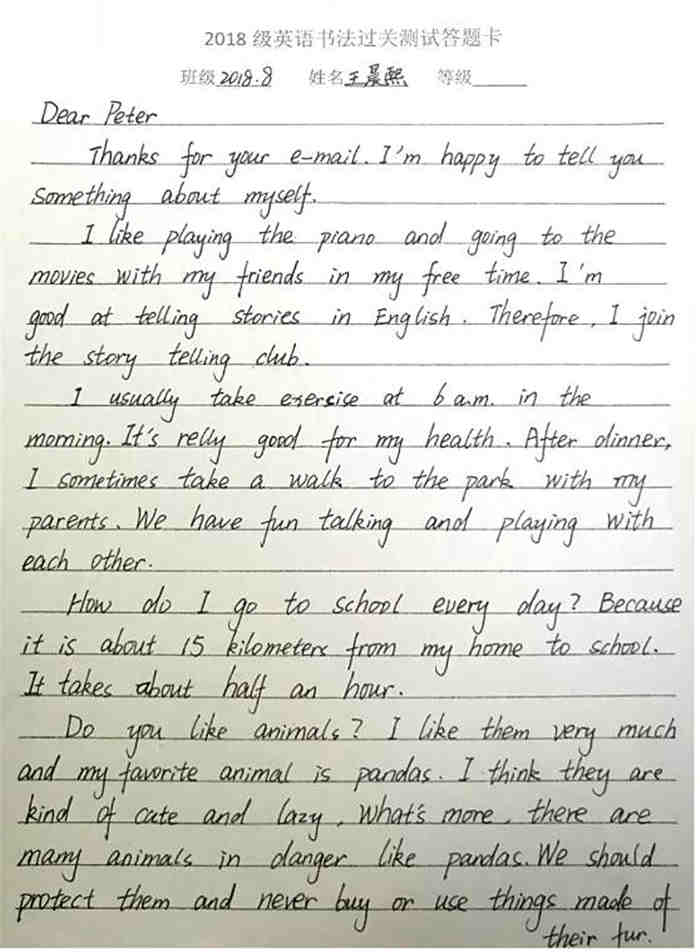 2018 级英语书法过关测试答题卡
班级 2018.8 姓名 王晨熙 等级
Dear Peter
Thanks for your e-mail. I'm happy to tell you
something about myself.
I like playing the piano and going to the
movies with my friends in my free time. I'm
good at telling stories in English. Therefore, I join
the story telling club.
I usually take exersise at 6 a.m. in the
morning. It's relly good for my health. After dinner,
I sometimes take a walk to the park with my
parents. We have fun talking and playing with
each other.
How do I go to school every day? Because
it is about 15 kilometers from my home to school.
It takes about half an hour.
Do you like animals? I like them very much
and my favorite animal is pandas. I think they are
kind of cute and lazy, What's more, there are
many animals in danger like pandas. We should
protect them and never buy or use things made of
their fur.